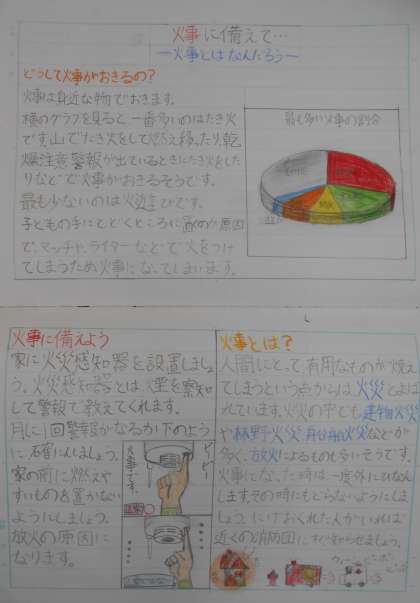 火事に備えて…
ー火事とはなんだろうー
どうして火事がおきるの?
火事は身近な物でおきます。
横のグラフを見ると、一番多いのはたき火
です。山でたき火をして燃え移ったり、乾
燥注意警報が出ているときにたき火をし
たりなどで火事がおきるそうです。
最も少ないのは火遊びです。
子どもの手にとどくところに置くのが原因
で、マッチや、ライターなどで火をつけ
てしまうため火事になってしまいます。
最も多い火事の割合
火事に備えよう
家に火災感知器を設置しましょ
う。火災感知器とは、煙を察知
して警報で教えてくれます。
月に1回警報がなるか下のよう
に石確にんしましょう。
家の前に燃えや
すいものを置かない
ようにしましょう。
放火の原因に
なります。
火事です。
火事とは?
人間にとって、有用なものが焼え
てしまうという点からは、火災とよば
れています。火災の中でも、建物火災
や林野火災、船舶火災などが
多く、放火によるものも多いそうです。
火事になった時は一度外にひなん
します。その時にもどらないようにしま
しょう。にげおくれた人がいれば
近くの消防団にすぐ知らせましょう。